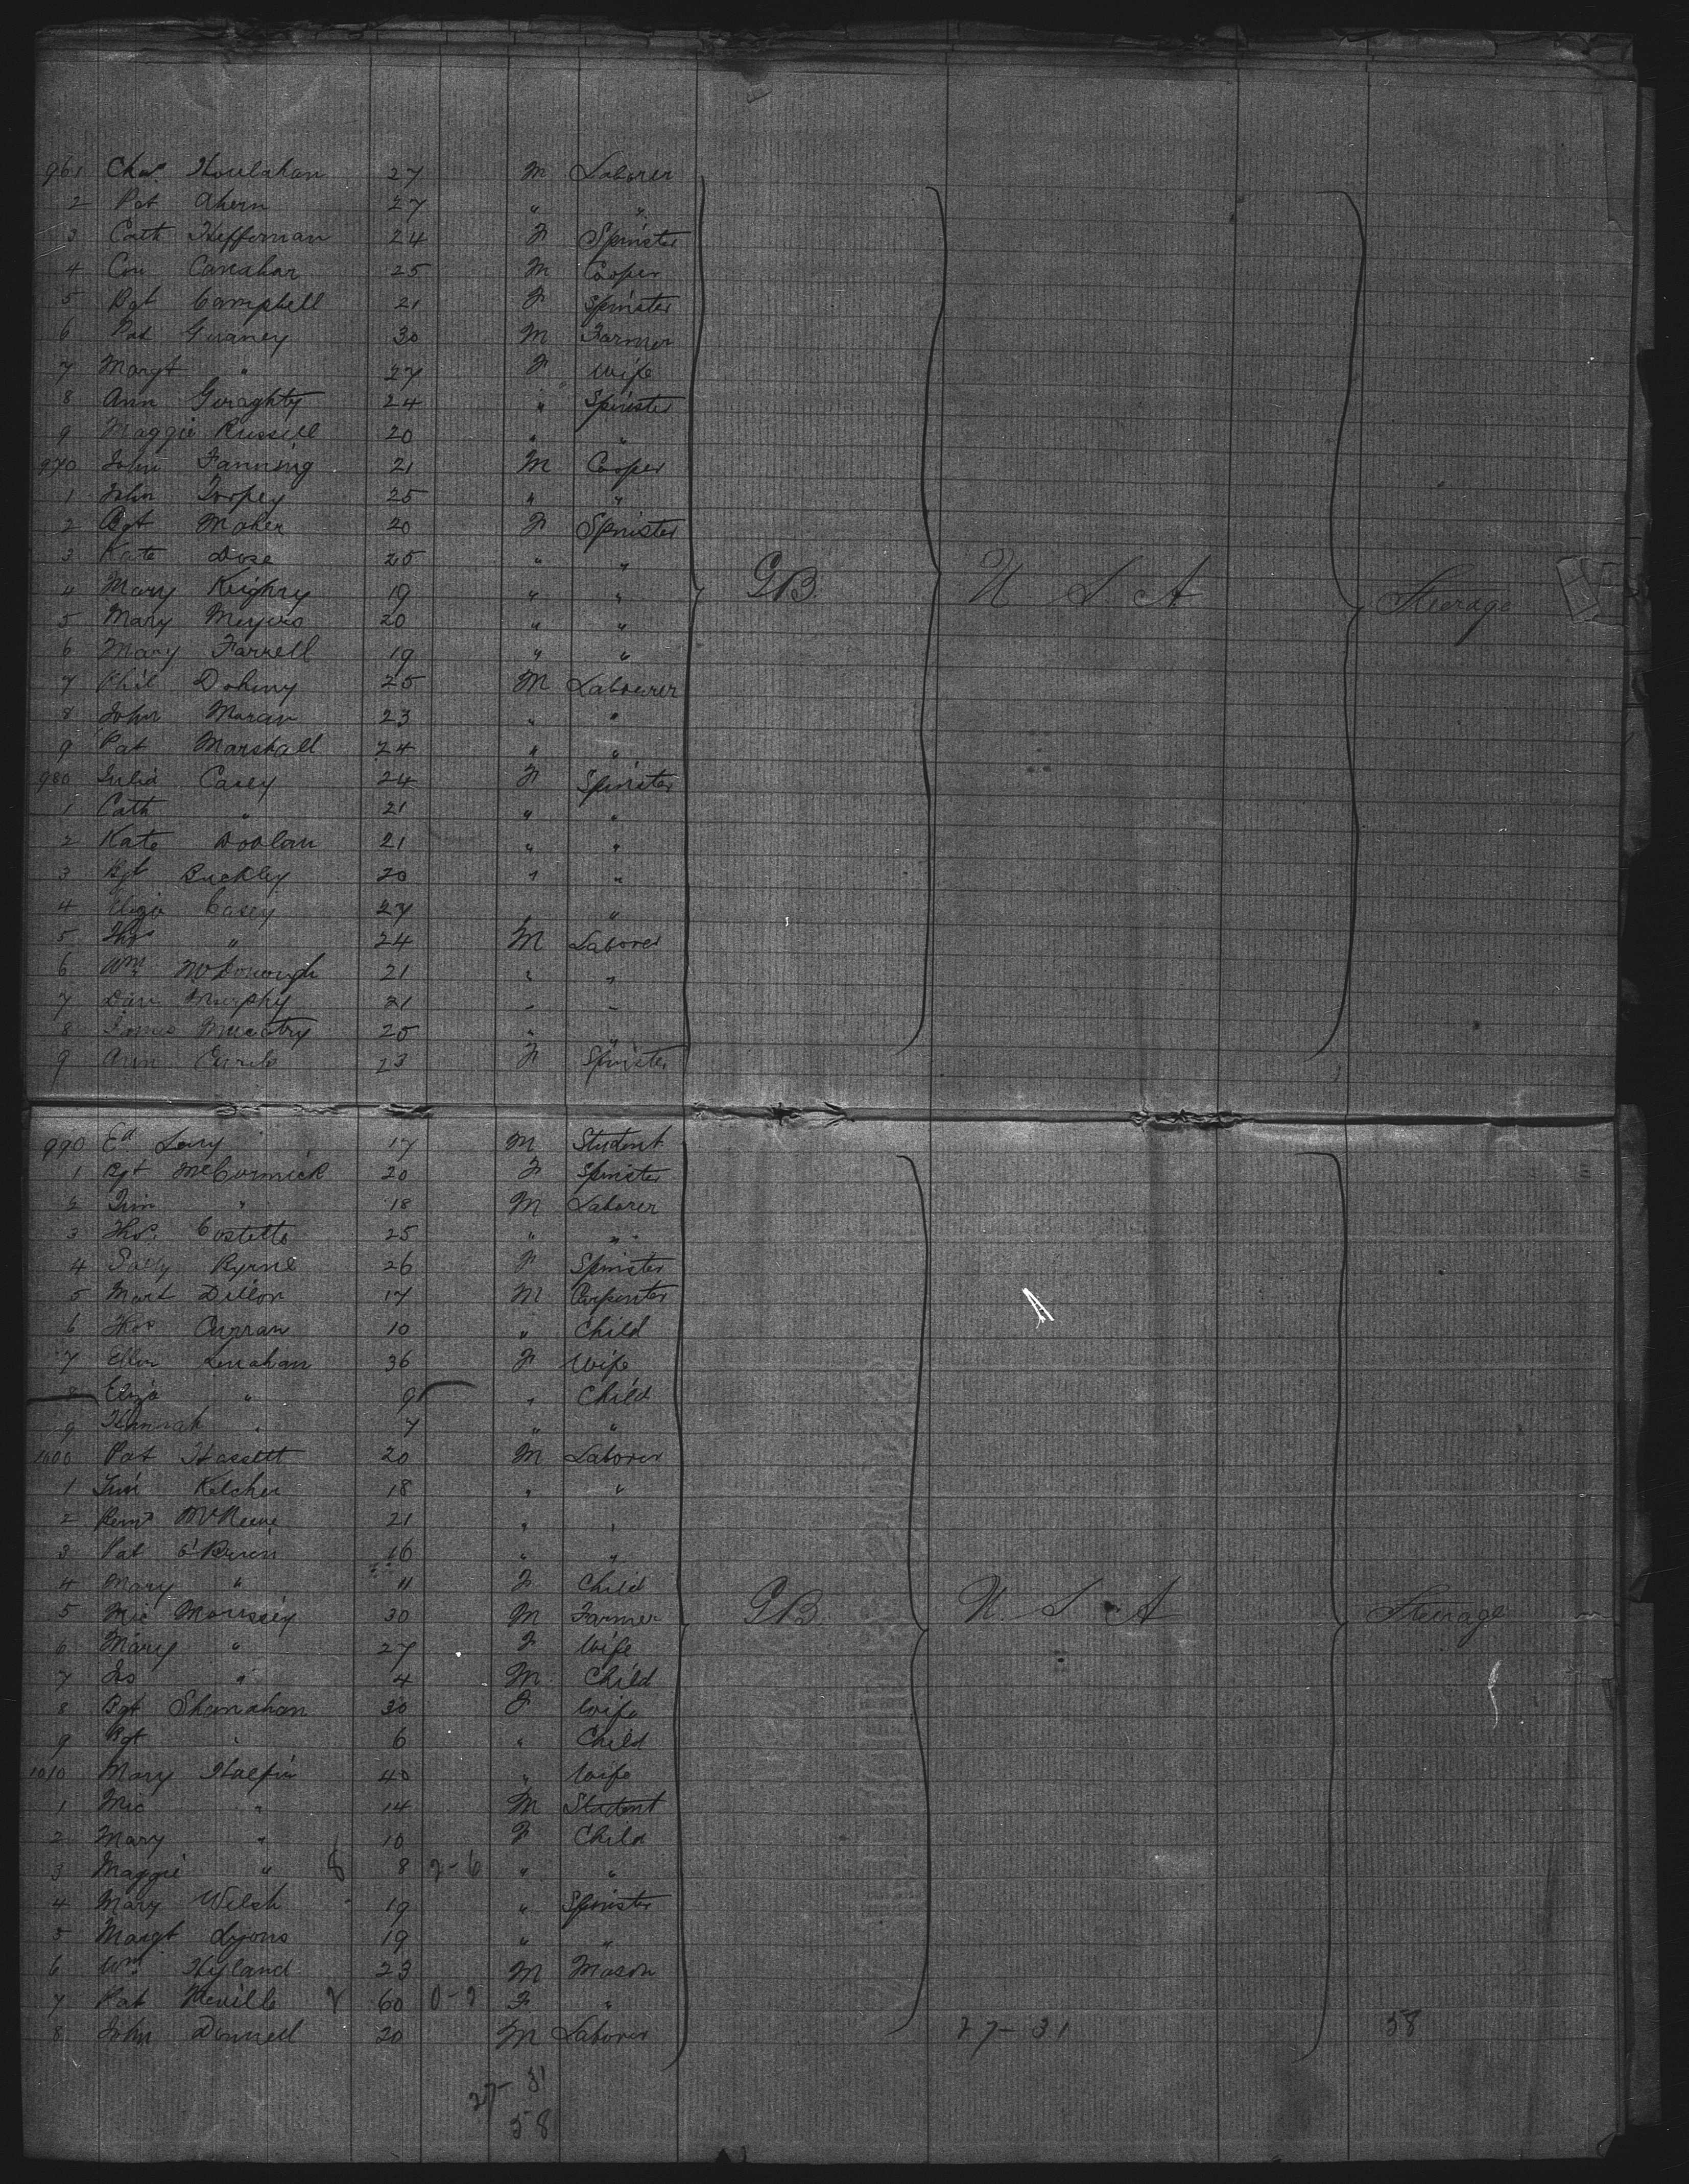 961 Chas. Houlahan 27 M Laborer
2 Pat Ahern 27 " "
3 Cath Heffernan 24 F Spinster
4 Con Canahar 25 M Cooper
5 Bgt Campbell 21 F Spinster
6 Pat Geraney 30 M Farmer
7 Margt " 27 F Wife
8 Ann Geraghty 24 " Spinster
9 Maggie Russell 20 " "
970 John Fanning 21 M Cooper
1 John Torpey 25 " "
2 Bgt Maher 20 F Spinster
3 Kate 25 " "
4 Mary Keighry 19 " "
5 Mary Meyers 20 " "
GB U S A Steerage
6 Mary Farrell 19 " "
7 Phil Doheny 25 M Labourer
8 John Moran 23 " "
9 Pat Marshall 24 " "
980 Julia Casey 24 F Spinster
1 Cath " 21 " "
2 Kate Doolan 21 " "
3 Bgt Buckley 20 " "
4 Eliza Casey 27 "
5 Thos " 24 M Laborer
6 Wm McDonough 21 " "
7 Dan Murphy 21 " "
8 James 25 " "
9 Ann 23 F Spinster
990 Ed Lary 17 M Student
1 Bgt McCormick 20 F Spinster
2 Tim " 18 M Laborer
3 Thos. Costello 25 " "
4 Sally Byrne 26 F Spinster
5 Mart Dillon 17 M Carpenter
6 Thos Curran 10 " Child
7 Ellen Lenahan 36 F Wife
8 Eliza " 9 " Child
9 Hannah " 7 " "
1000 Pat Hassett 20 M Laborer
1 Tim Kelcher 18 " "
2 21 " "
3 Pat O'Brien 16 " "
4 Mary " 11 F Child
5 Mic Morissey 30 M Farmer
GB U. S A Steerage
6 Mary " 27 F Wife
7 Jas " 4 M Child
8 Bgt Shanahan 30 F Wife
9 Bgt " 6 " Child
1010 Mary Halpin 40 " Wife
1 Mic " 14 M Student
2 Mary " 10 F Child
3 Maggie " 8 2-6 " "
4 Mary Welsh 19 " Spinster
5 Margt Lyons 19 " "
6 Wm. Hyland 23 M Mason
7 Pat Neville 60 0-2 F "
8 John Donnell 20 M Laborer 27-31 58
27-31
58